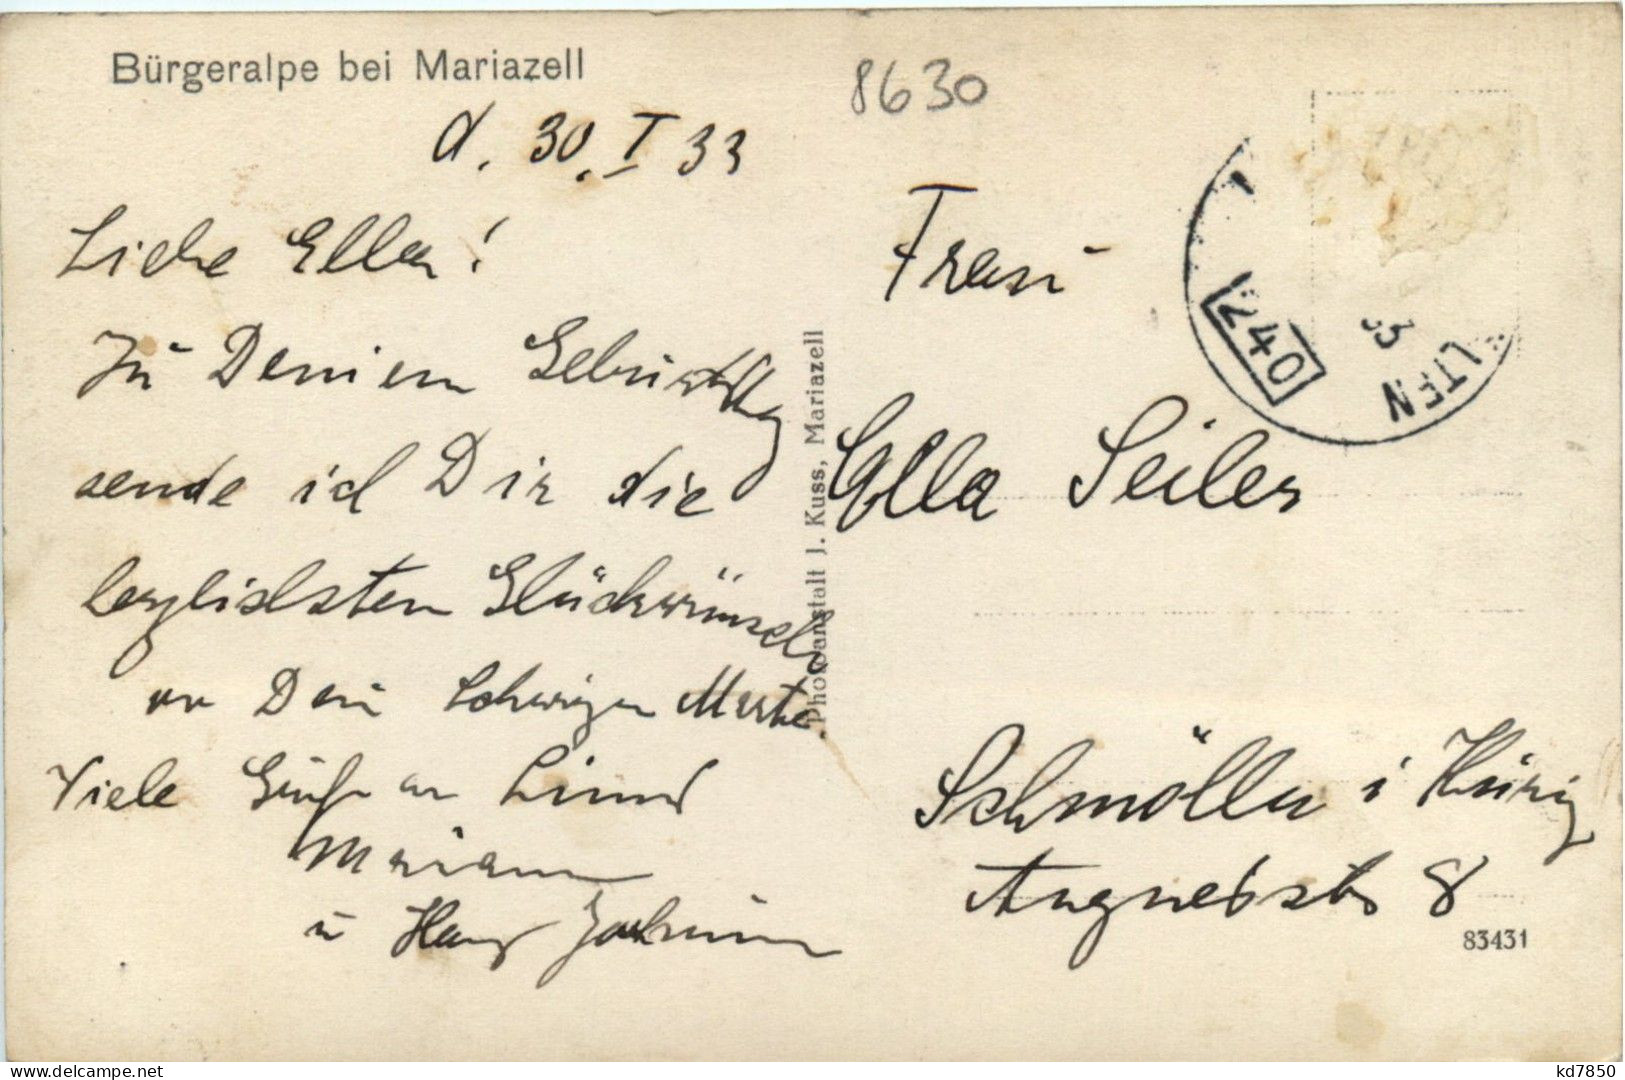 Bürgeralpe bei Mariazell
8630
d. 30. I 33
Liebe Ella!
Zu Deinem Geburtstag
sende ich Dir die
herzlichsten Glückwünsche
Dein Schwiegermutter.
Viele Grüße an
Mariann
u Hans Joachim
Photoanstalt J. Kuss, Mariazell
Frau
Ella Seiler
Schmölln i Thüring
8
83431
240
33
LTEN
www.delcampe.net
kd7850